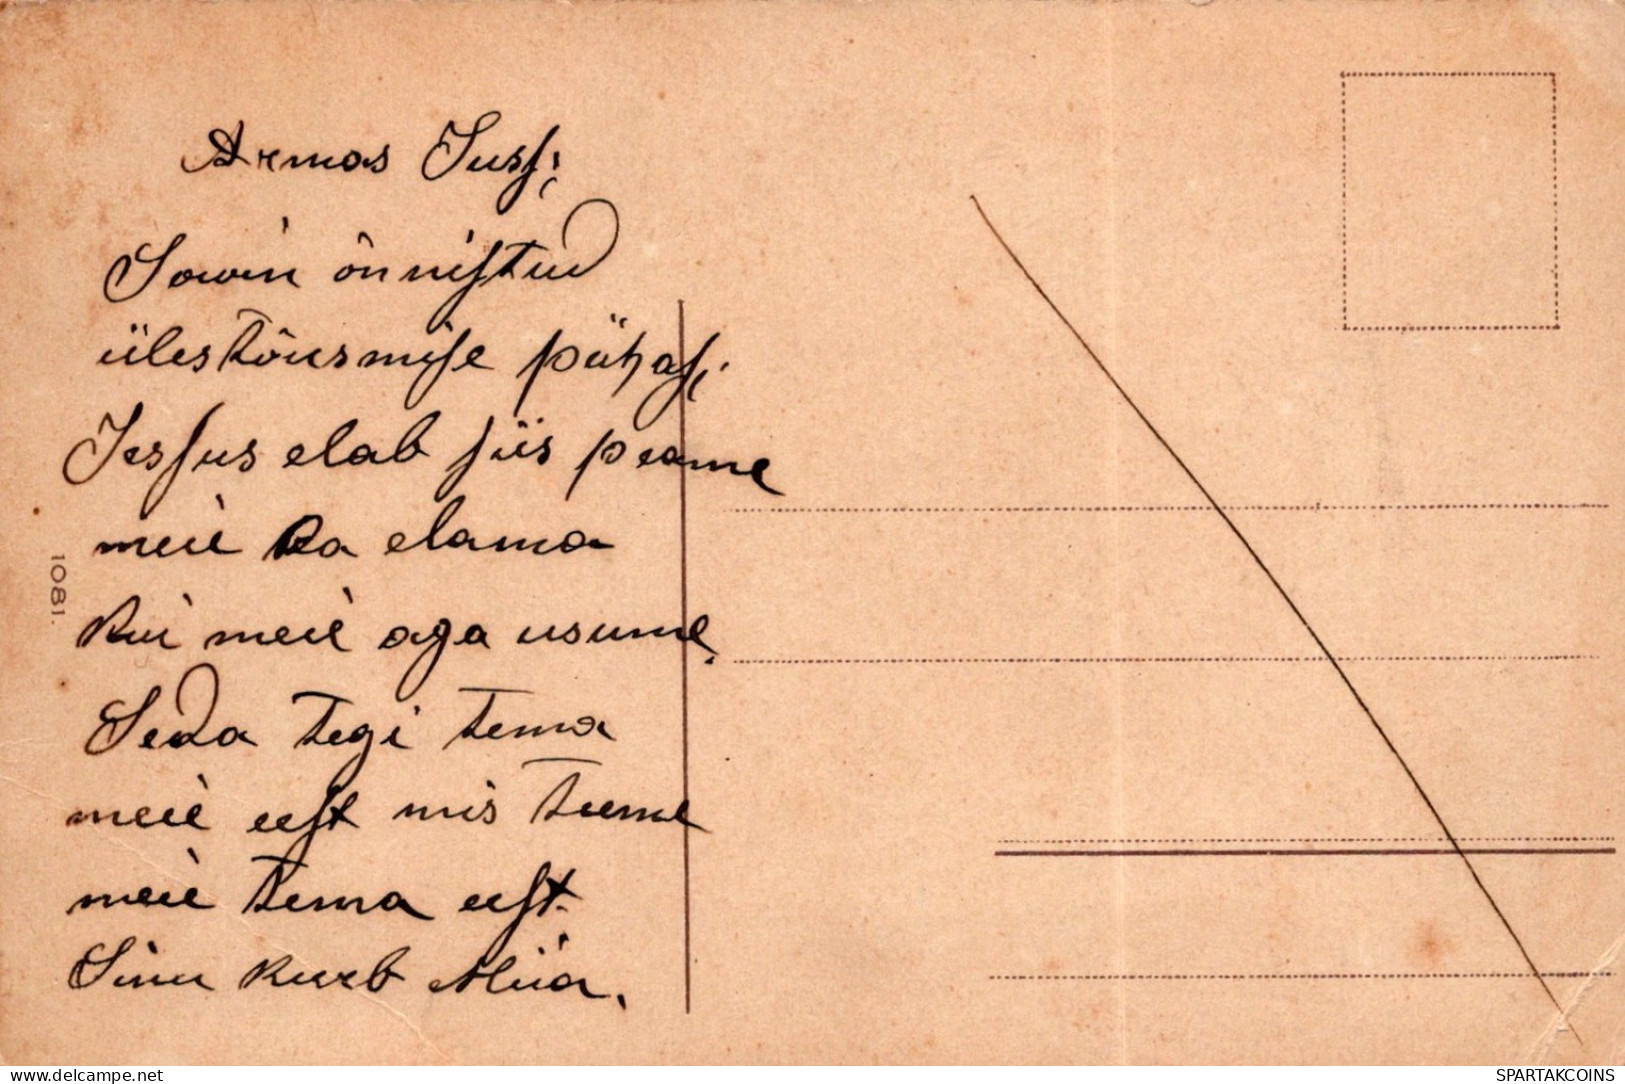 Armas Juss;
Sowin õnnistud
ülestõusmise pühas;
Jessus elab siis peame
meie ka elama
kui meie aga usume.
Seda tegi tema
meie eest mis teeme
meie tema eest.
Sinu kurb Miia.
1081.
delcampe.net
SPARTAKCOINS